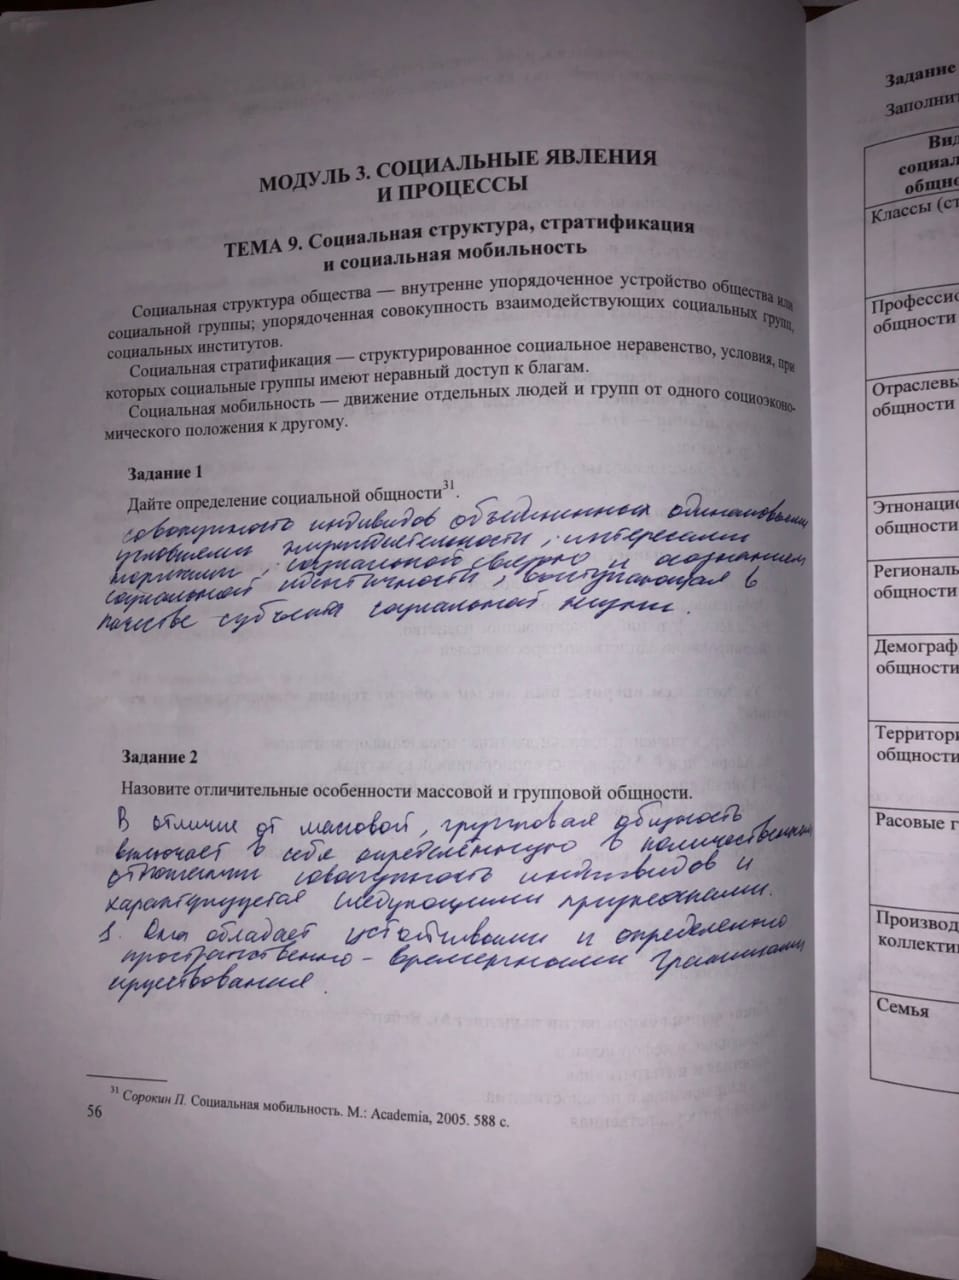 МОДУЛЬ 3. СОЦИАЛЬНЫЕ ЯВЛЕНИЯ
И ПРОЦЕССЫ
ТЕМА 9. Социальная структура, стратификация
и социальная мобильность
Социальная структура общества — внутренне упорядоченное устройство общества или
социальной группы; упорядоченная совокупность взаимодействующих социальных групп,
социальных институтов.
Социальная стратификация — структурированное социальное неравенство, условия, при
которых социальные группы имеют неравный доступ к благам.
Социальная мобильность — движение отдельных людей и групп от одного социоэконо-
мического положения к другому.
Задание 1
Дайте определение социальной общности31.
совокупность индивидов объединенных одинаковыми
условиями жизнедеятельности, интересами
нормами, социальной связью и осознанием
социальной идентичности, выступающая в
качестве субъекта социальной жизни.
Задание 2
Назовите отличительные особенности массовой и групповой общности.
В отличие от массовой, групповая общность
включает в себя определенную в количественном
отношении совокупность индивидов и
характеризуется следующими признаками.
1. Она обладает устойчивыми и определенно
пространственно-временными границами
существования.
31 Сорокин П. Социальная мобильность. М.: Academia, 2005. 588 с.
56
Задание
Заполнит
Вид
социал
общно
Классы (ст
Професси
общности
Отраслевы
общности
Этнонацио
общности
Региональ
общности
Демограф
общности
Территори
общности
Расовые г
Производ
коллекти
Семья